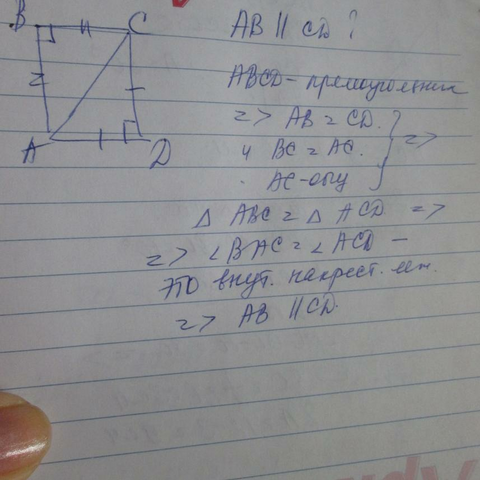 B C
A D
AB || CD ?
ABCD – прямоугольник
=> AB = CD.
и BC = AC. } =>
AC – общ
Δ ABC = Δ ACD =>
=> ∠BAC = ∠ACD –
это внут. накрест. леж.
=> AB || CD.